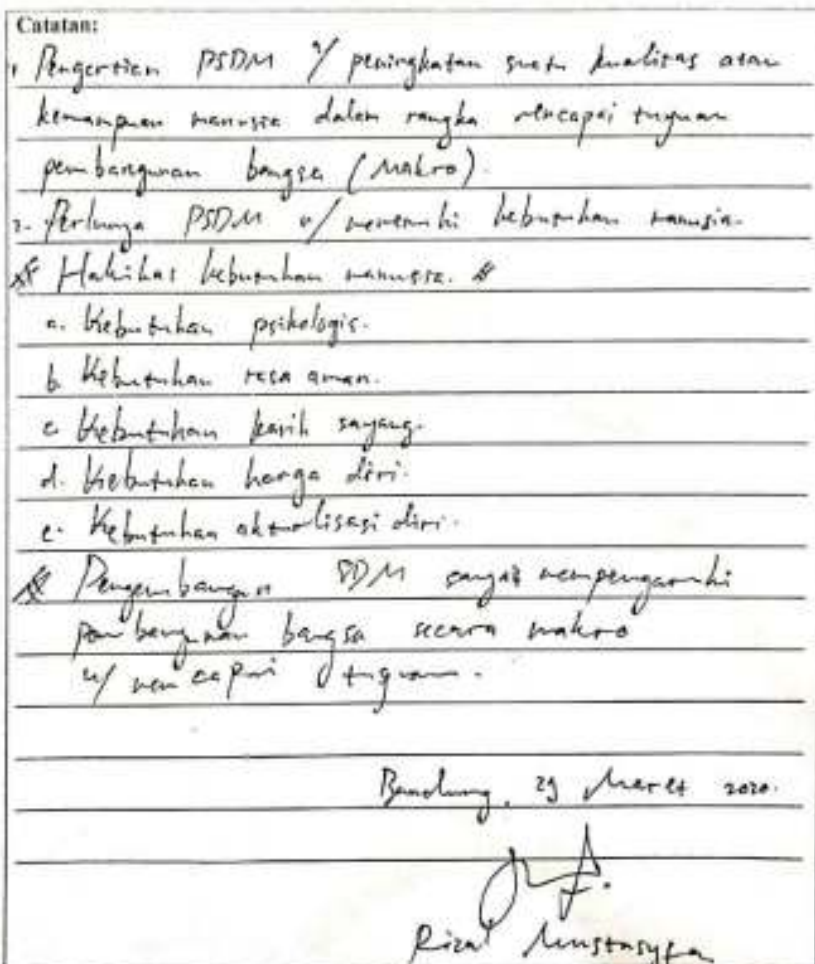 Catatan:
1. Pengertian PSDM u/ peningkatan suatu kualitas atau
kemampuan manusia dalam rangka mencapai tujuan
pembangunan bangsa (Makro).
2. Perlunya PSDM u/ memenuhi kebutuhan manusia.
Hakikat kebutuhan manusia.
a. Kebutuhan psikologis.
b. Kebutuhan rasa aman.
c. Kebutuhan kasih sayang.
d. Kebutuhan harga diri.
e. Kebutuhan aktualisasi diri.
Pengembangan SDM sangat mempengaruhi
pembangunan bangsa secara makro
u/ mencapai tujuan.
Bandung, 29 Maret 2020.
Rizal